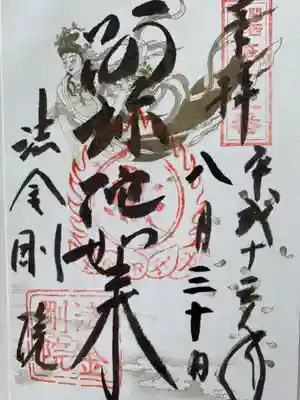 奉拝
平成十三年
八月三十日
阿弥陀如来
法金剛院
法金
剛院